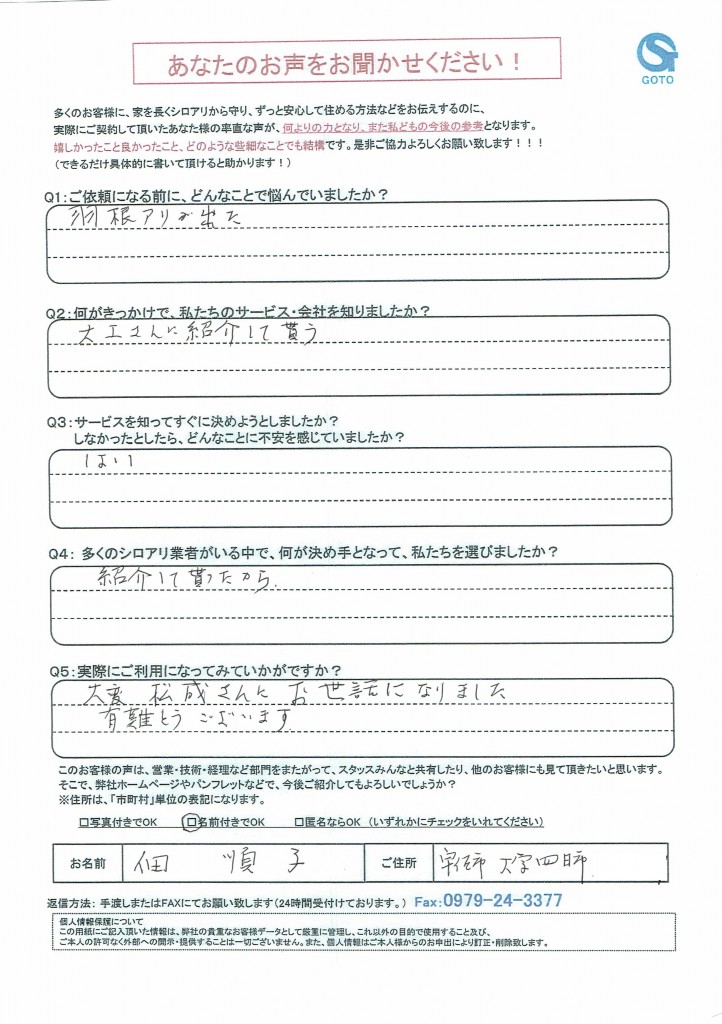 あなたのお声をお聞かせください！
GOTO
多くのお客様に、家を長くシロアリから守り、ずっと安心して住める方法などをお伝えするのに、
実際にご契約して頂いたあなた様の率直な声が、何よりの力となり、また私どもの今後の参考となります。
嬉しかったこと良かったこと、どのような些細なことでも結構です。是非ご協力よろしくお願い致します！！！
（できるだけ具体的に書いて頂けると助かります！）
Q1：ご依頼になる前に、どんなことで悩んでいましたか？
羽根アリが出た
Q2：何がきっかけで、私たちのサービス・会社を知りましたか？
大工さんに紹介して貰う
Q3：サービスを知ってすぐに決めようとしましたか？
しなかったとしたら、どんなことに不安を感じていましたか？
はい
Q4： 多くのシロアリ業者がいる中で、何が決め手となって、私たちを選びましたか？
紹介して貰ったから.
Q5：実際にご利用になってみていかがですか？
大変 松成さんに お世話になりました
有難とう ございます
このお客様の声は、営業・技術・経理など部門をまたがって、スタッスみんなと共有したり、他のお客様にも見て頂きたいと思います。
そこで、弊社ホームページやパンフレットなどで、今後ご紹介してもよろしいでしょうか？
※住所は、「市町村」単位の表記になります。
□写真付きでOK □名前付きでOK □匿名ならOK （いずれかにチェックをいれてください）
お名前 佃 順子 ご住所 大字四日市
返信方法： 手渡しまたはFAXにてお願い致します（24時間受付ております。） Fax：0979-24-3377
個人情報保護について
この用紙にご記入頂いた情報は、弊社の貴重なお客様データとして厳重に管理し、これ以外の目的で使用すること及び、
ご本人の許可なく外部への開示・提供することは一切ございません。また、個人情報はご本人様からのお申出により訂正・削除致します。